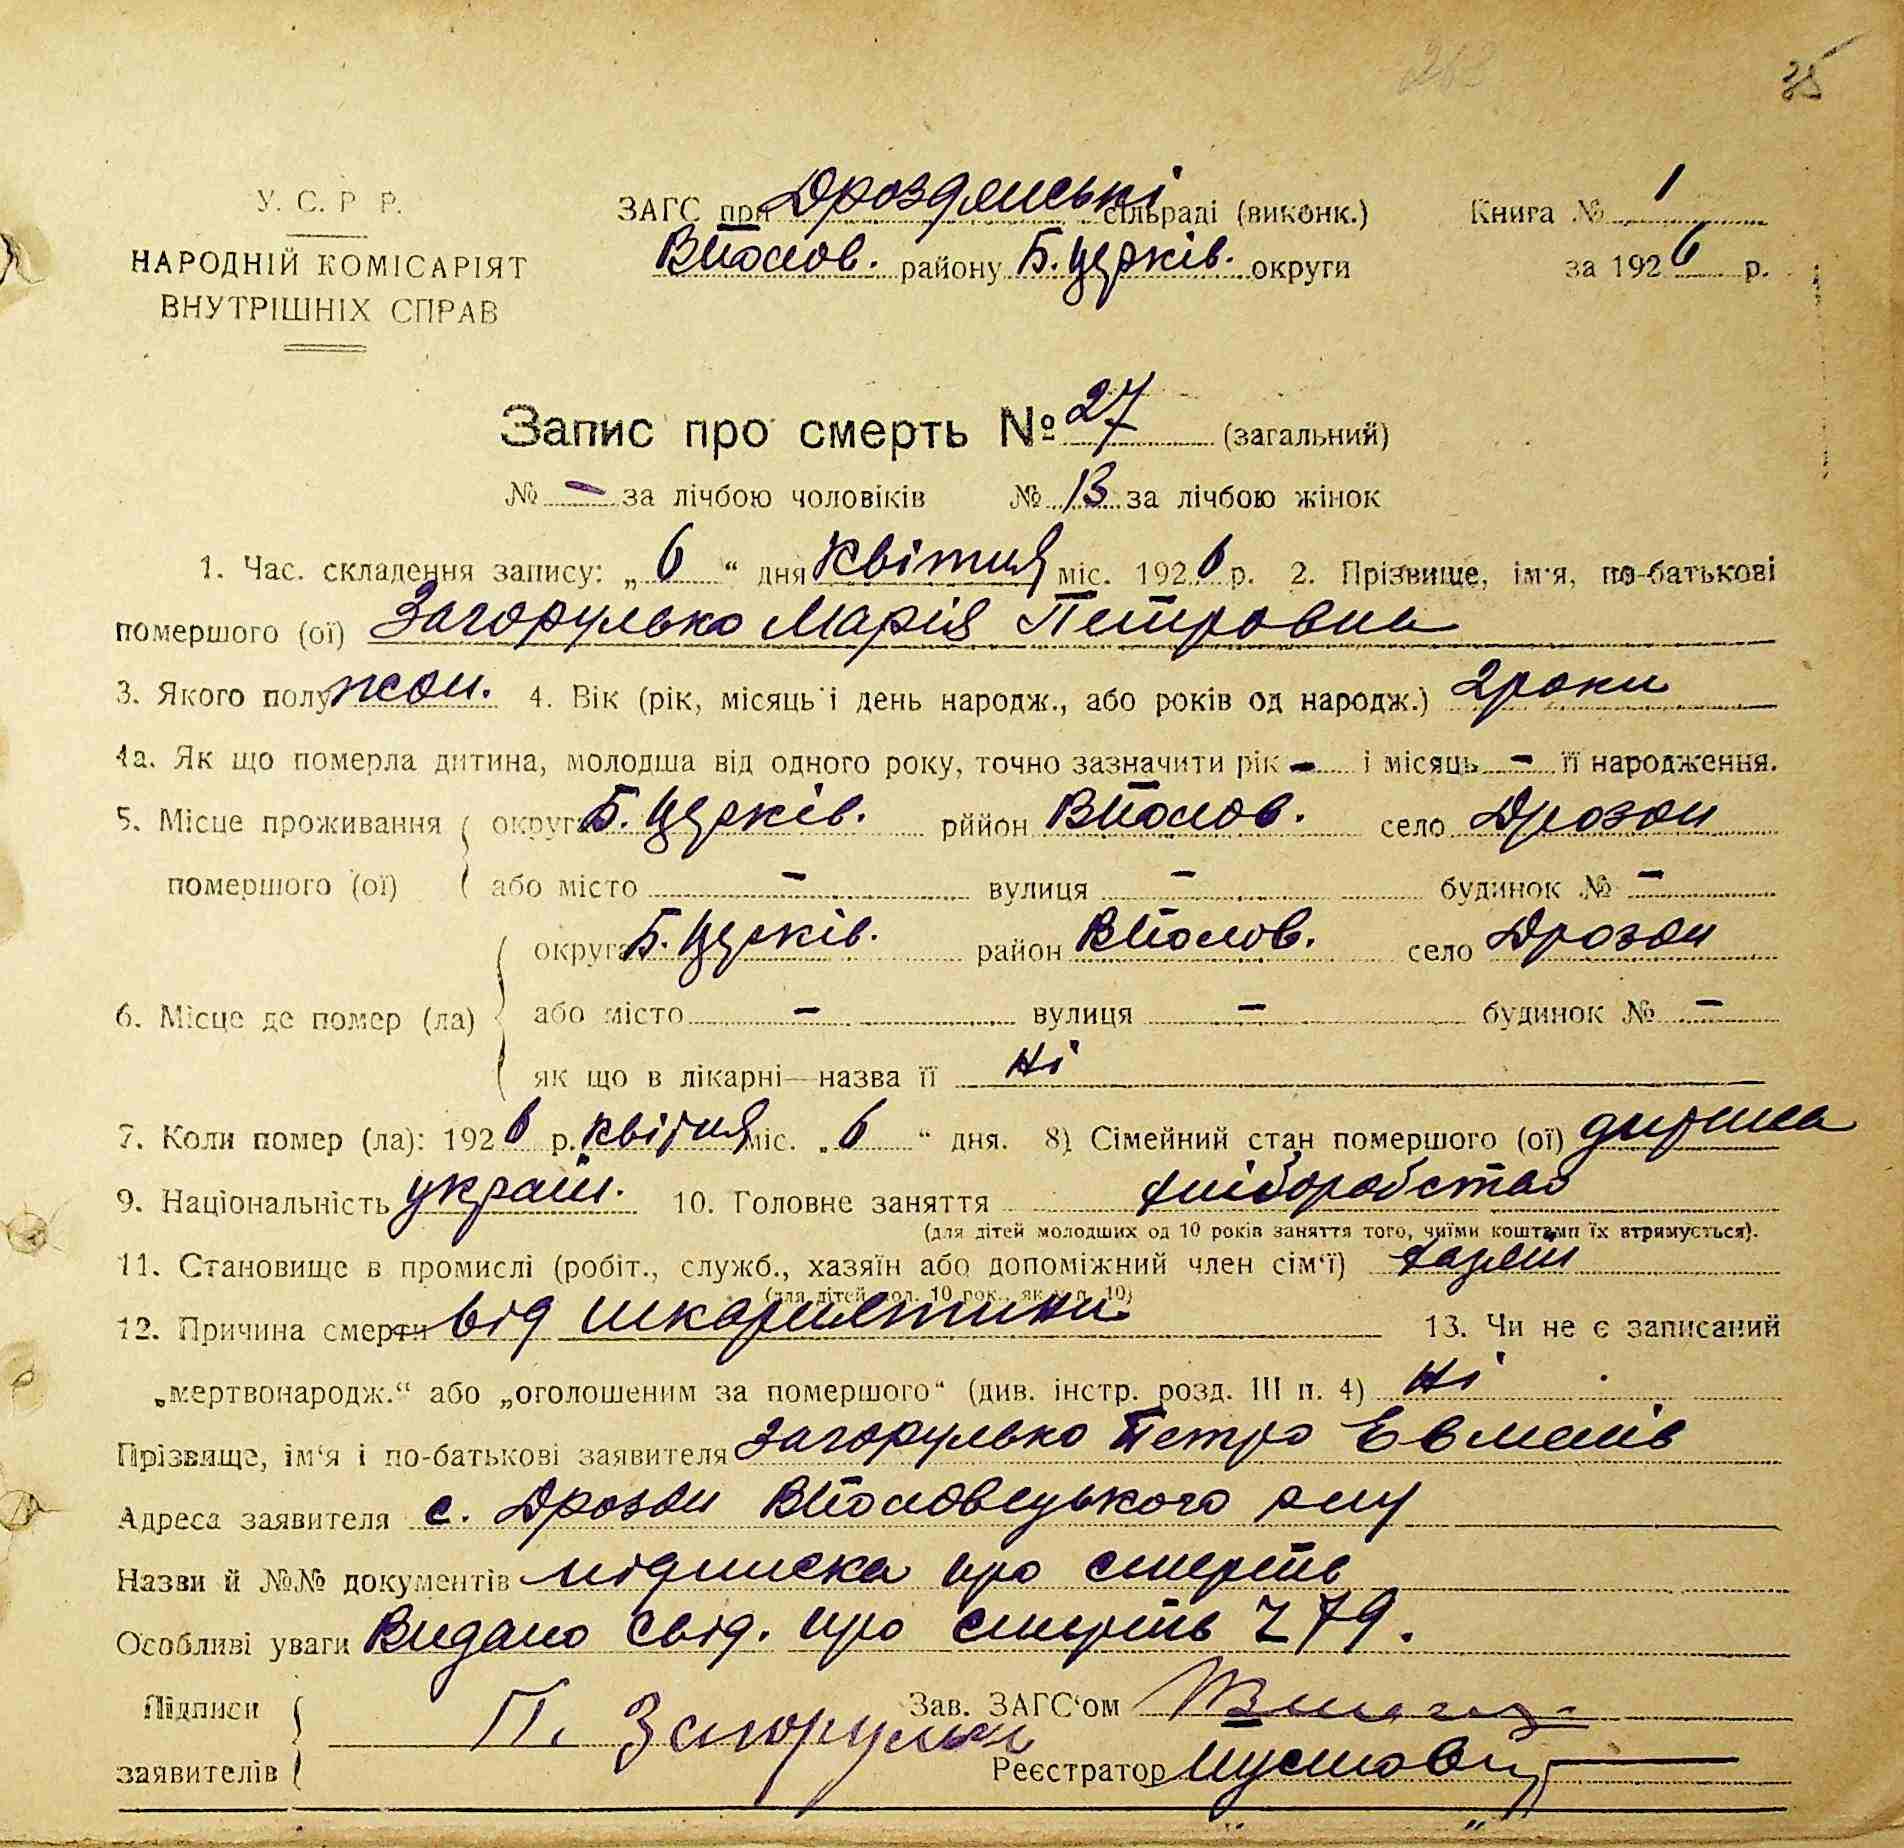 263 35
У. С. Р Р. ЗАГС при Дроздянські сільраді (виконк.) Книга № 1
НАРОДНІЙ КОМІСАРІЯТ ВПолов. району Б. Церків. округи за 1926 р.
ВНУТРІШНІХ СПРАВ
Запис про смерть № 27 (загальний)
№ – за лічбою чоловіків № 13 за лічбою жінок
1. Час. складення запису: „6“ дня квітня міс. 1926 р. 2. Прізвище, ім'я, по-батькові
помершого (ої) Загорулько Марія Петровна
3. Якого полу жон. 4. Вік (рік, місяць і день народж., або років од народж.) 2 роки
4а. Як що померла дитина, молодша від одного року, точно зазначити рік – і місяць – її народження.
5. Місце проживання округ Б. Церків. рййон ВПолов. село Дрозди
помершого (ої) або місто – вулиця – будинок № –
округа Б. Церків. район ВПолов. село Дрозди
6. Місце де помер (ла) або місто – вулиця – будинок № –
як що в лікарні—назва її Ні
7. Коли помер (ла): 1926 р. квітня міс. „6“ дня. 8) Сімейний стан помершого (ої) дитина
9. Національність украін. 10. Головне заняття хліборобство
(для дітей молодших од 10 років заняття того, чиїми коштами їх втримується).
11. Становище в промислі (робіт., служб., хазяїн або допоміжний член сім'ї) хазяін
(для дітей мол. 10 рок., як у п. 10)
12. Причина смерти від шкарлятини 13. Чи не є записаний
„мертвонародж.“ або „оголошеним за помершого“ (див. інстр. розд. III п. 4) Ні
Прізвище, ім'я і по-батькові заявителя Загорулько Петро Евменів
Адреса заявителя с. Дрозди ВПоловецького рну
Назви й №№ документів підписка про смерть
Особливі уваги Видано свід. про смерть Z 79.
Підписи П. Загорулько Зав. ЗАГС'ом
заявителів Реєстратор